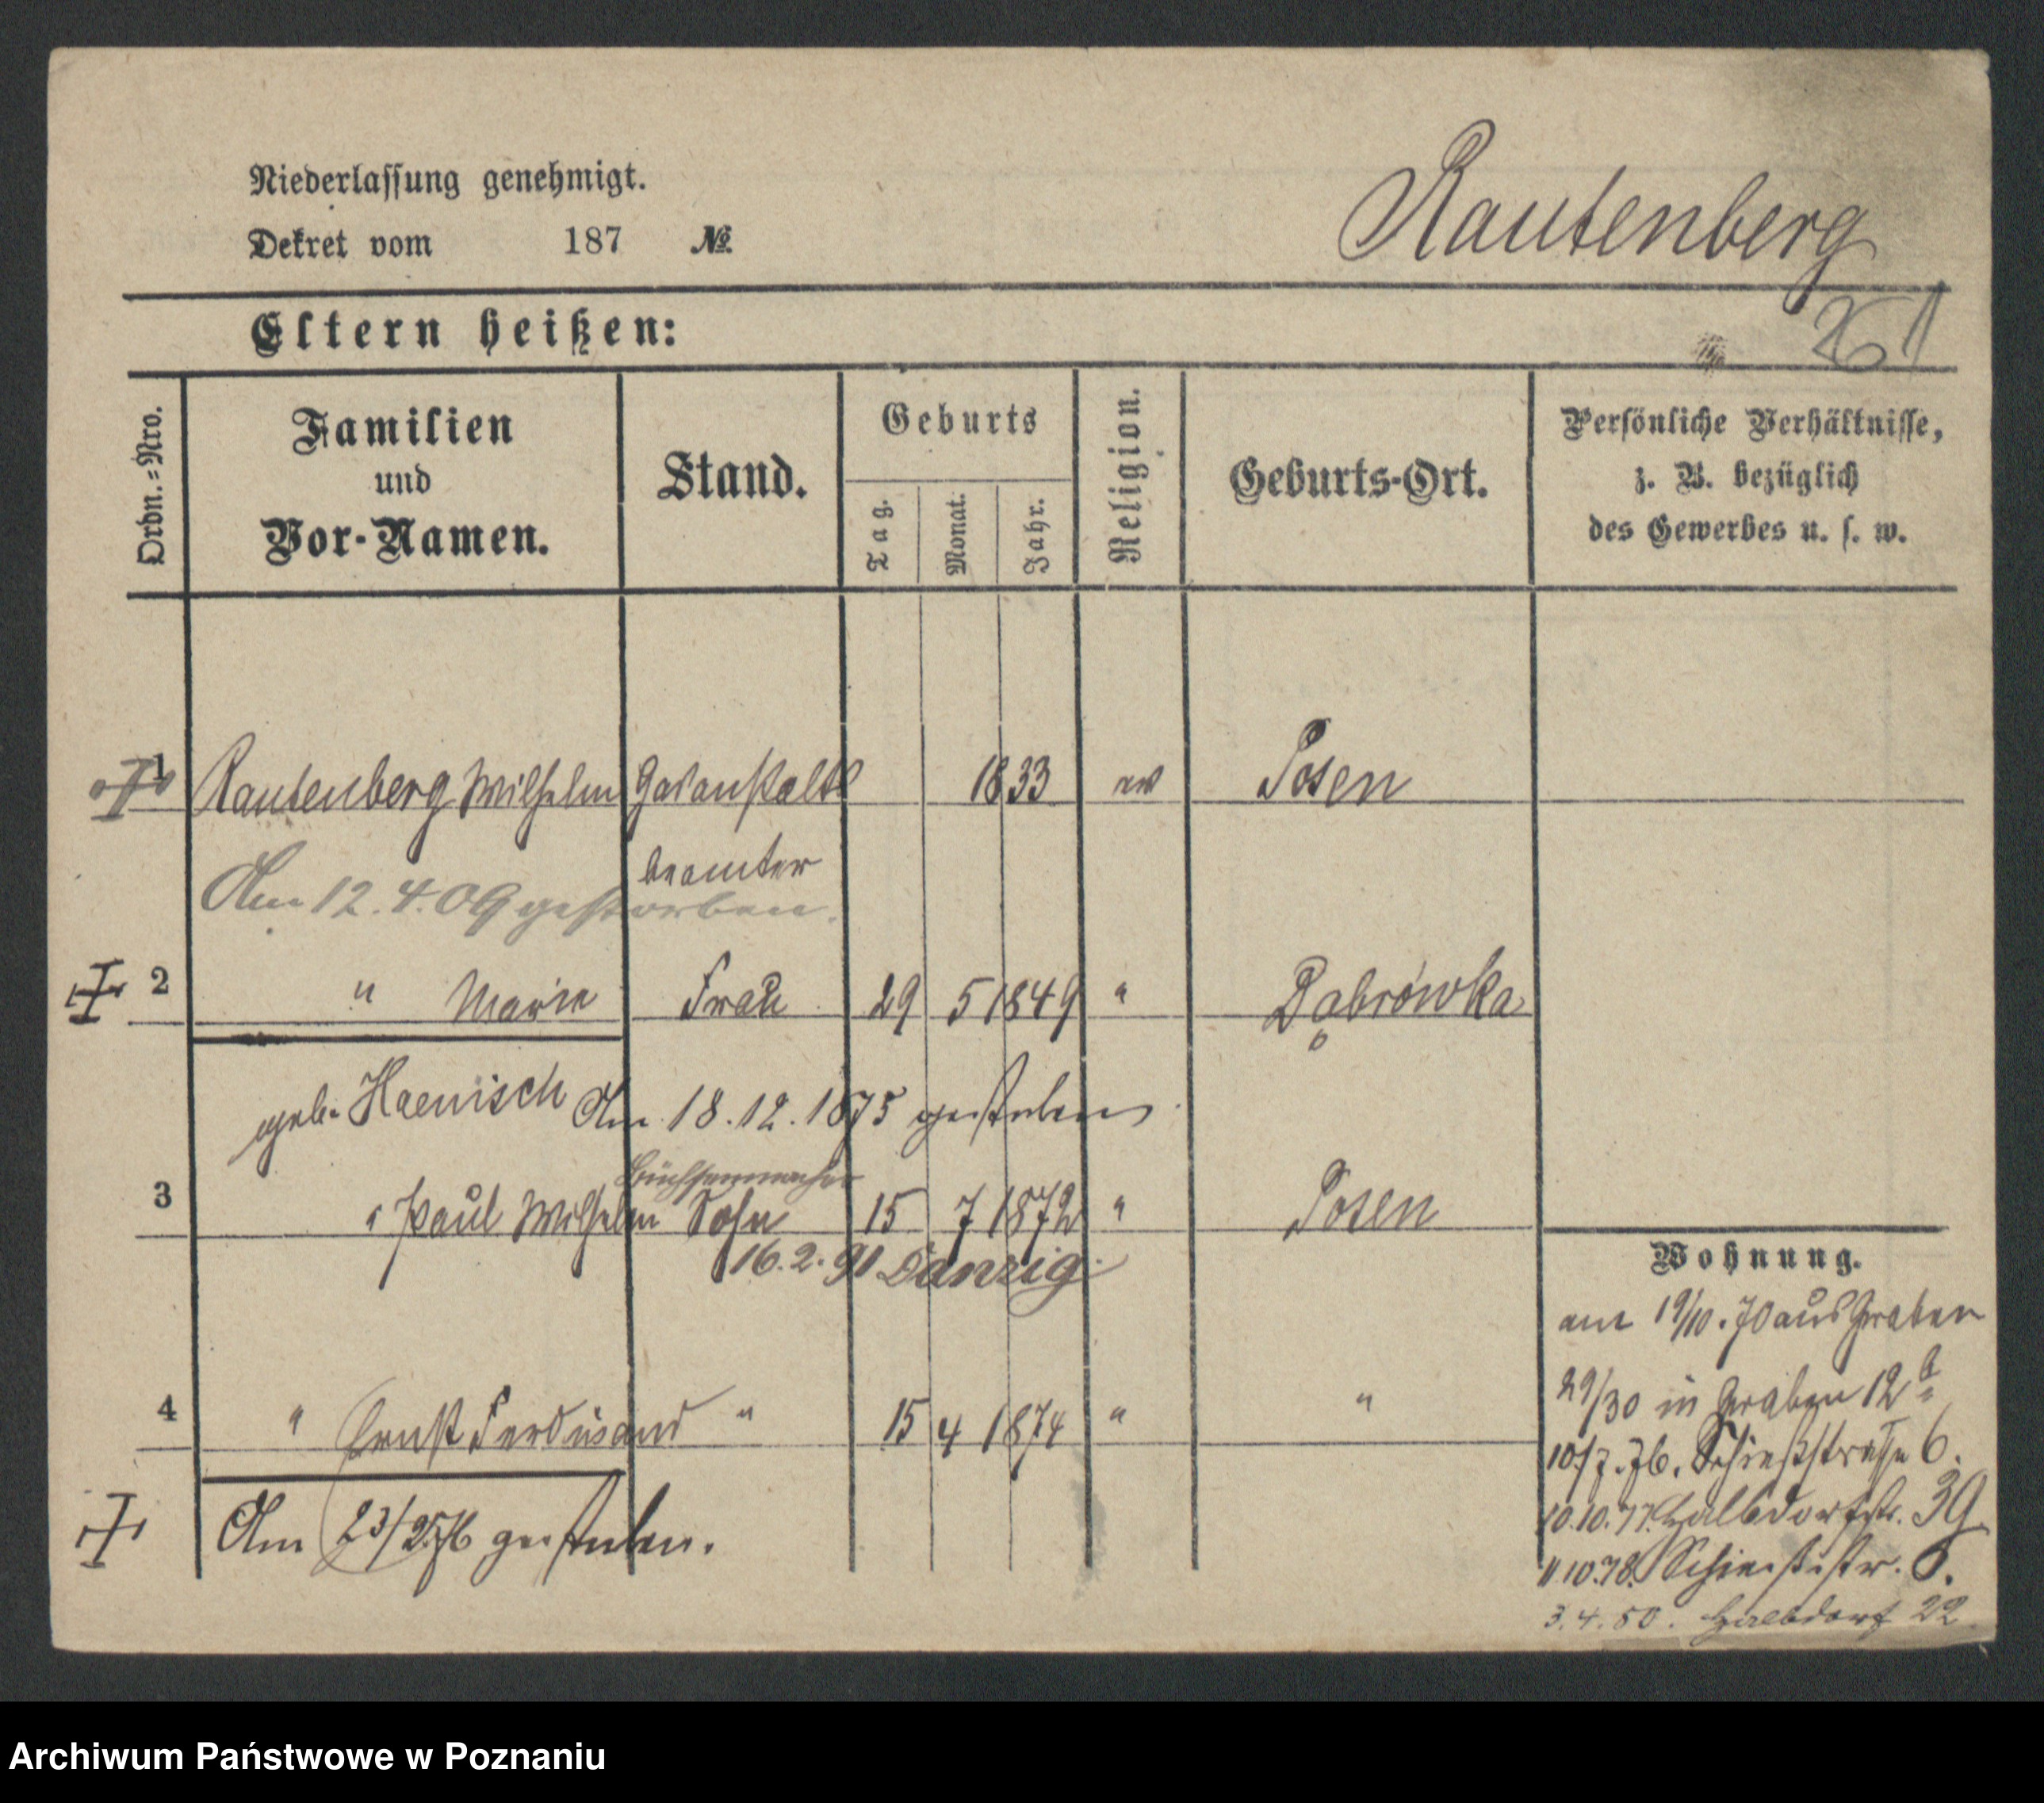 Niederlassung genehmigt.
Dekret vom 187 №
Rautenberg
Eltern heißen:
Ordn.=Nro.
Familien
und
Vor-Namen.
Stand.
Geburts
Tag.
Monat.
Jahr.
Religion.
Geburts-Ort.
Persönliche Verhältnisse,
z. B. bezüglich
des Gewerbes u. s. w.
1 Rautenberg Wilhelm Gasanstalts 1833 ev Posen
beamter
Am 12.4.09 gestorben.
2 " Marie Frau 29 5 1849 " Dąbrówka
geb. Haenisch Am 18.12.1875 gestorben
Büchsenmacher
3 " Paul Wilhelm Sohn 15 7 1872 " Posen
16.2.91 Danzig.
4 " Ernst Ferdinand " 15 4 1874 " "
Am 23/2 76 gestorben.
Wohnung.
am 19/10.70 aus Graben
29/30 in Graben 12 b
10/7.76. Schießstrasse 6.
10.10.77. Halbdorfstr. 39
11.10.78. Schießstr. 6.
3.4.80. Halbdorf 22
Archiwum Państwowe w Poznaniu